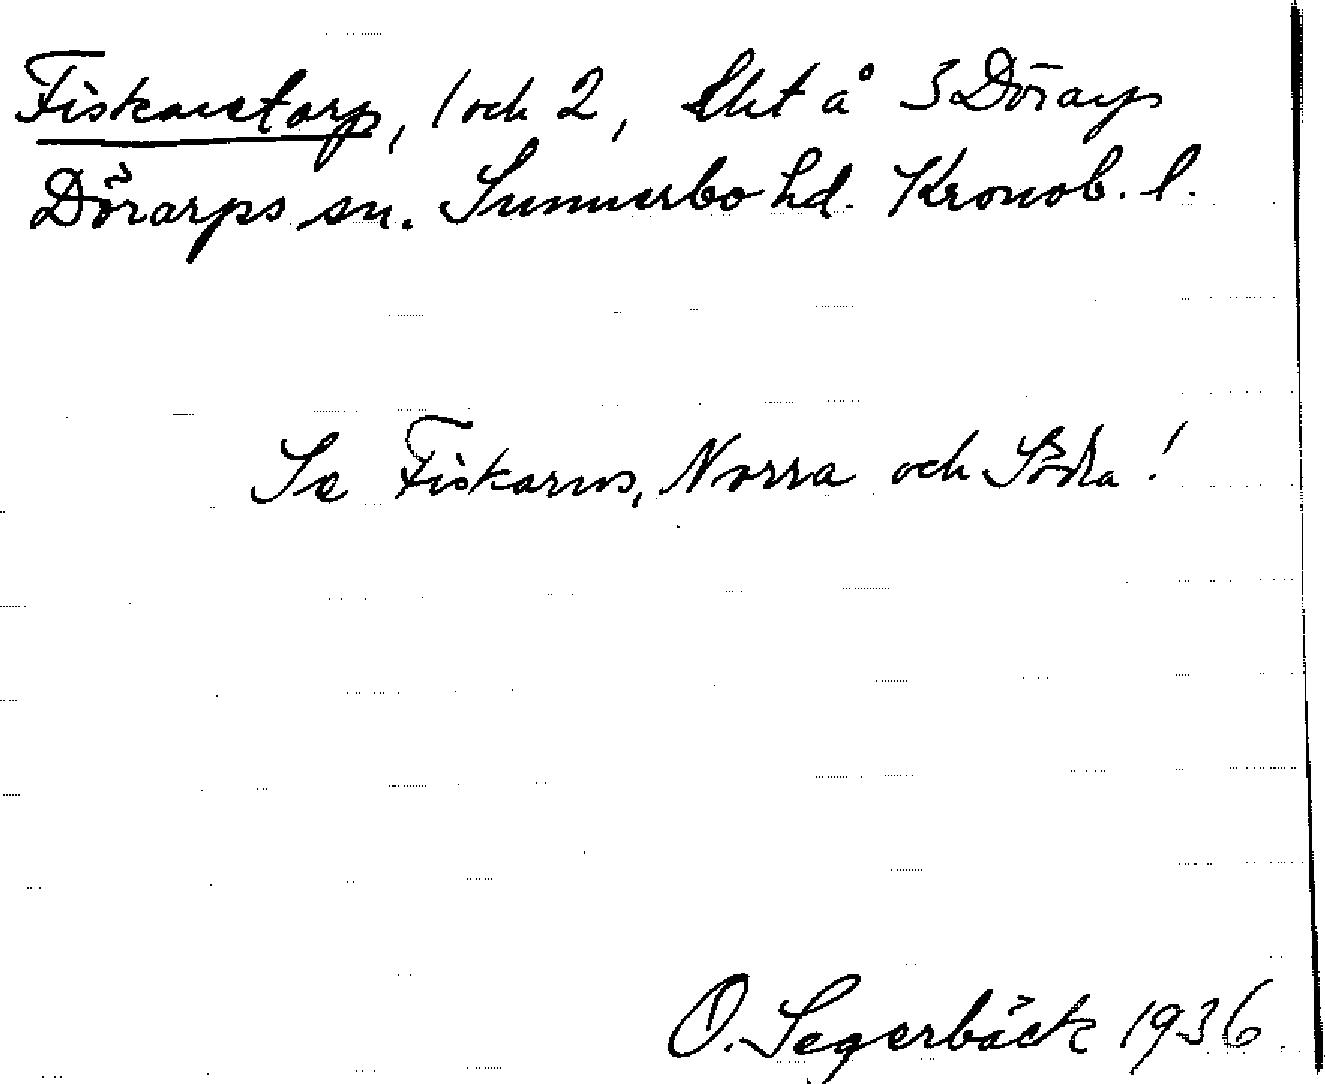 Fiskaretorp, 1 och 2, lht å 3 Dörarp
Dörarps sn. Sunnerbo hd. Kronob. l.
Se Fiskarns, Norra och Södra!
O. Segerbäck 1936.